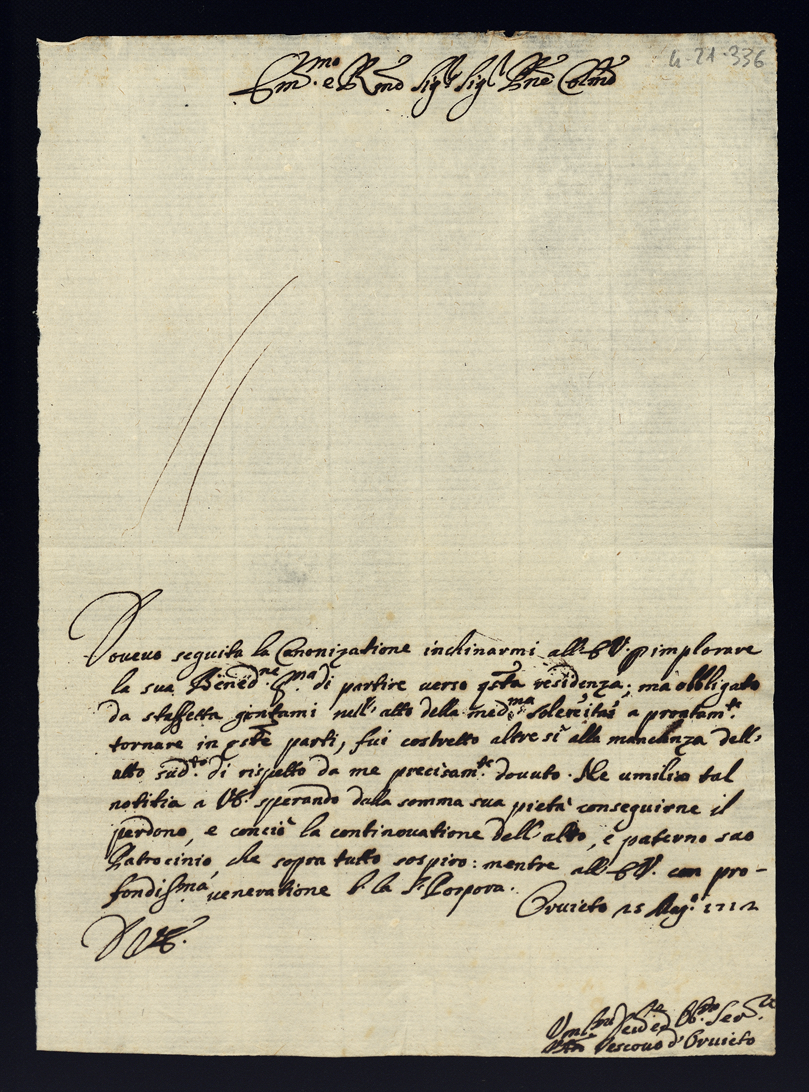 4-21-336
Em.mo e R.mo Sig.r Sig.r P̃ne Col.mo
Dovevo seguita la Canonizatione inchinarmi all'E.V. p implorare
la sua Bened.ne p.ma di partire verso q̃sta residenza; ma obbligato
da staffetta giontami nell'atto della med.ma solenità a prontam.te
tornare in q̃ste parti, fui costretto altresì alla mancanza dell'
atto sud.to di rispetto da me precisam.te dovuto. Ne umilio tal
notitia a V.E. sperando dalla somma sua pietà conseguirne il
perdono, e conciò la continovatione dell'alto, e paterno suo
Patrocinio, che sopra tutto sospiro: mentre all'E.V. con pro-
fondiss.ma veneratione b. la S. Porpora.
Orvieto 25 Mag.o 1712
D V.E.
Um.mo Dev. Obb.mo Ser.re
Vescovo d'Orvieto